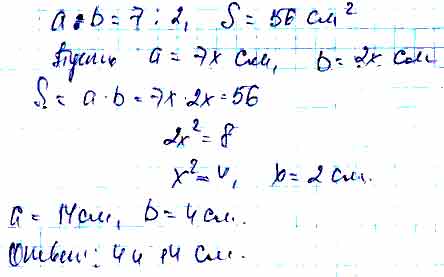 a : b = 7 : 2, S = 56 см²
Пусть a = 7x см, b = 2x см
S = a · b = 7x · 2x = 56
2x² = 8
x² = 4, x = 2 см.
a = 14 см, b = 4 см.
Ответ: 4 и 14 см.